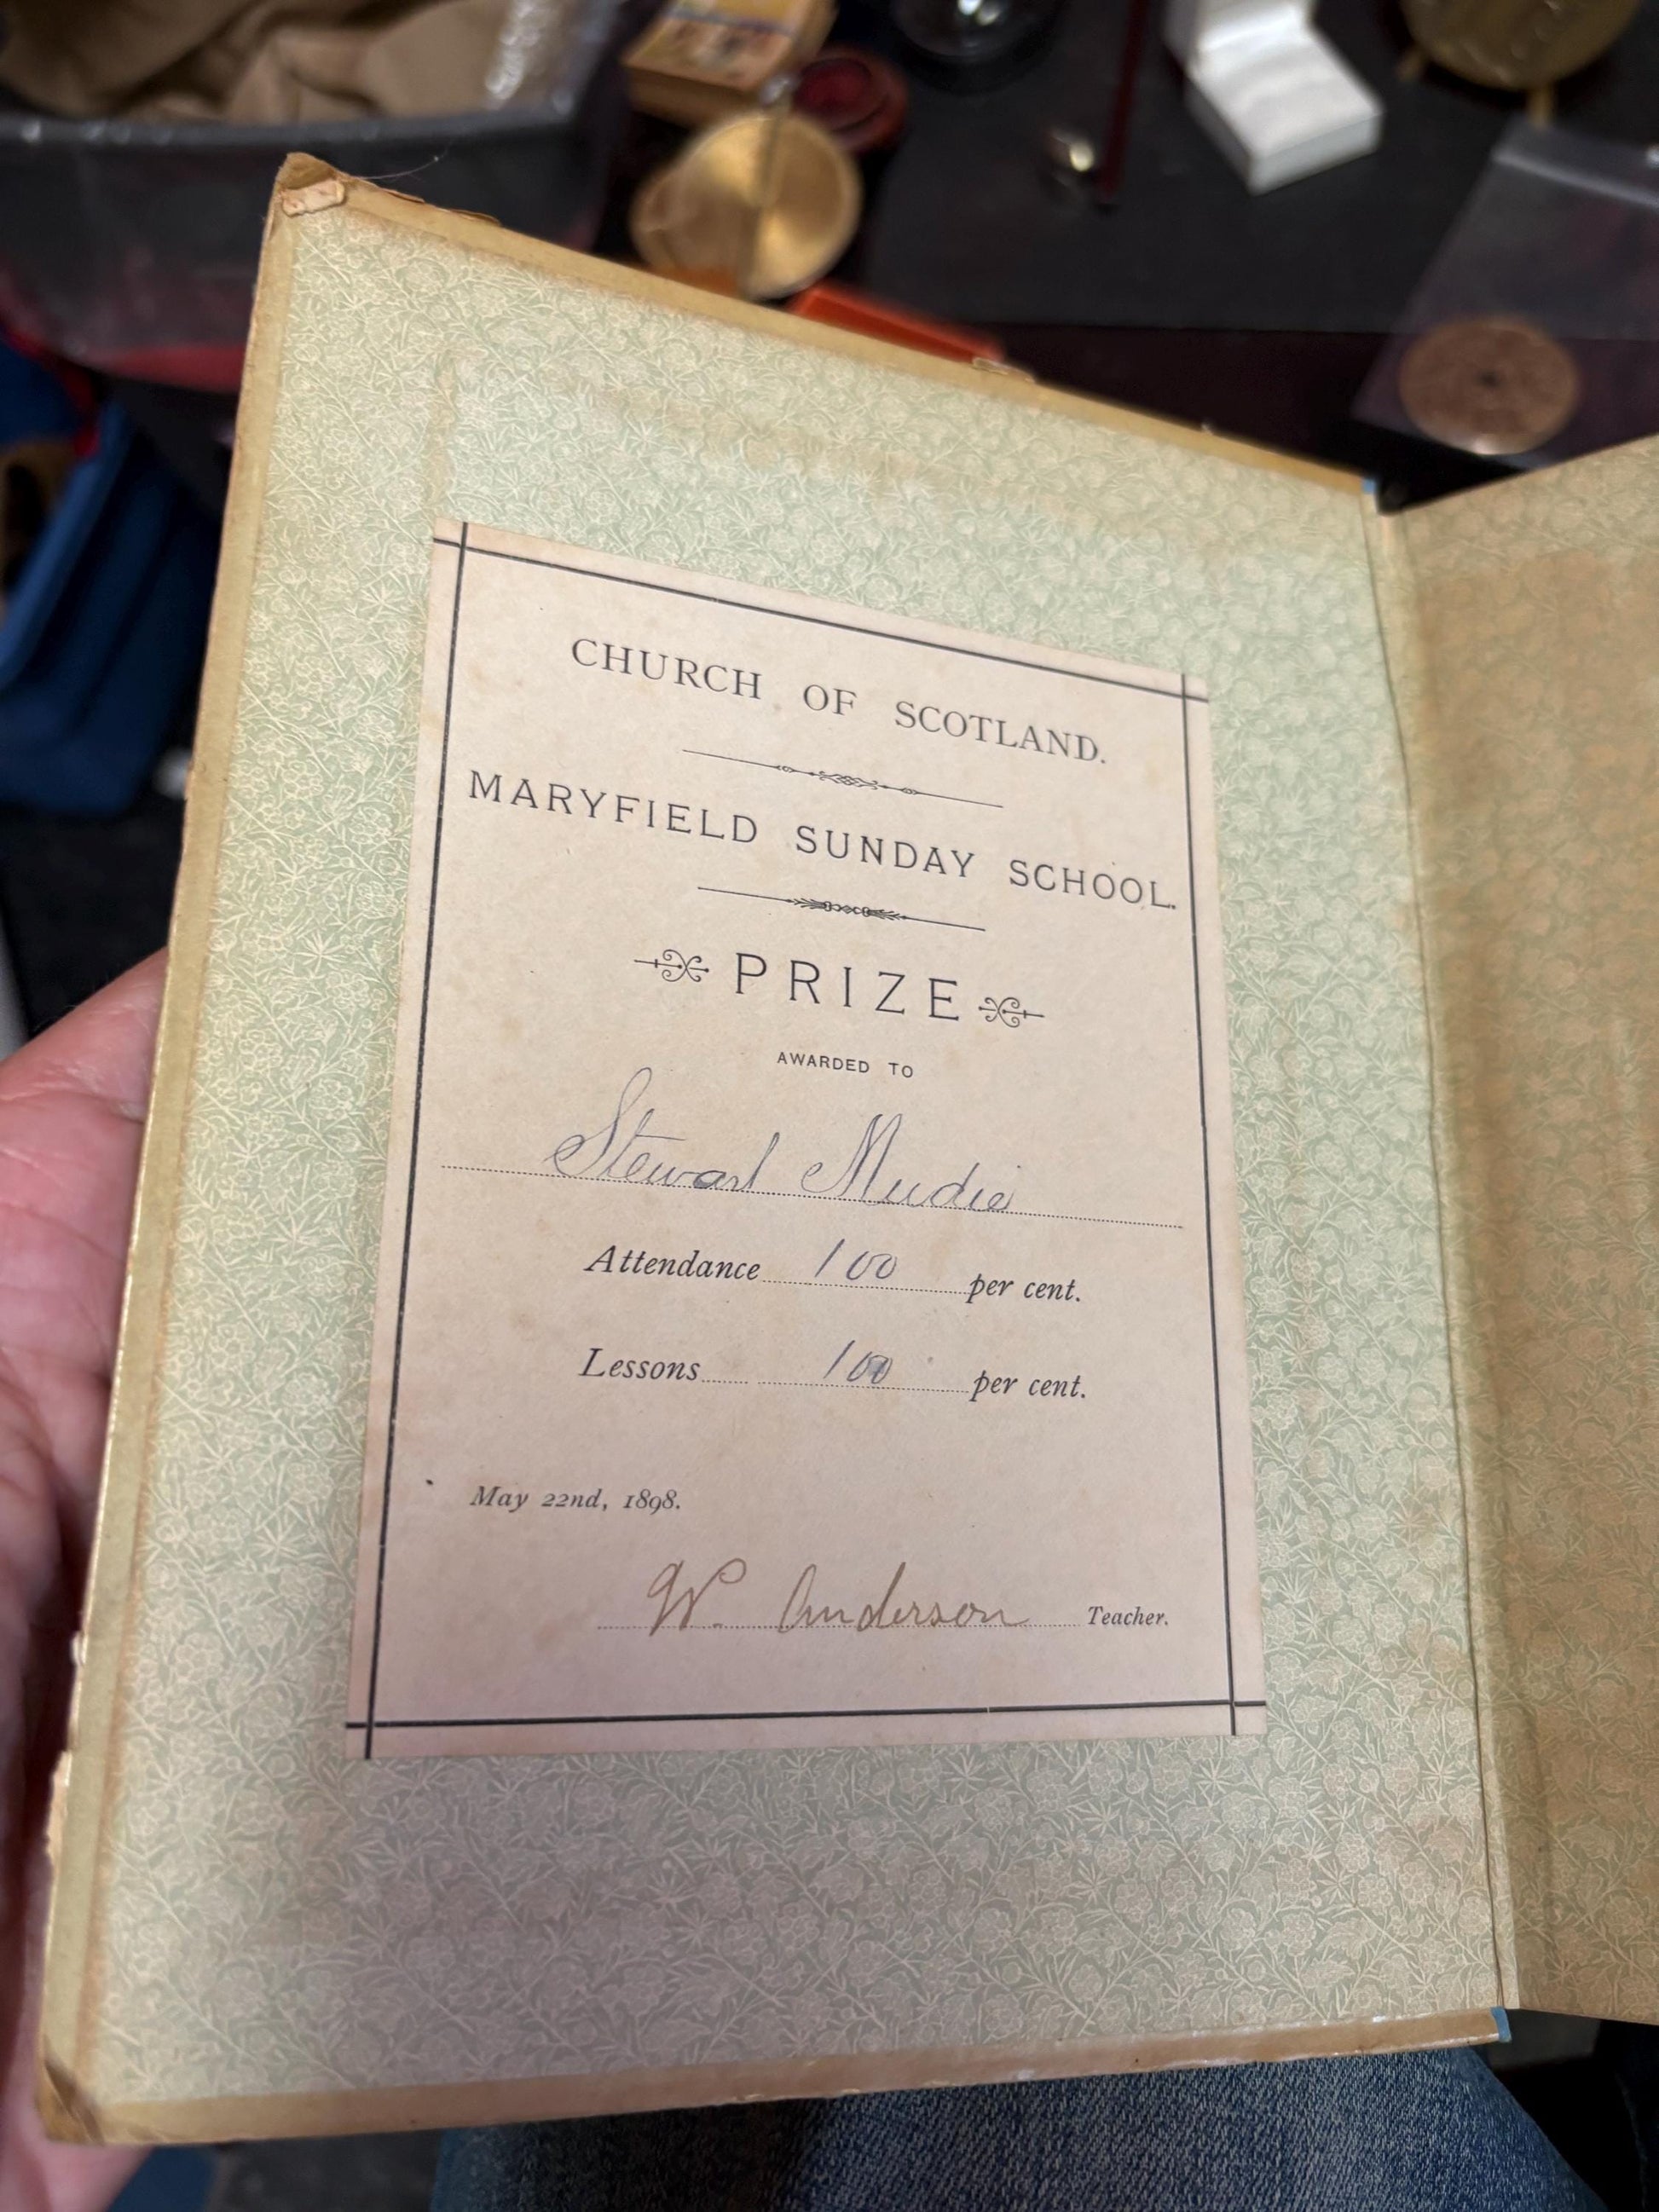 CHURCH OF SCOTLAND.
MARYFIELD SUNDAY SCHOOL.
PRIZE
AWARDED TO
Stewart Mudie
Attendance 100 per cent.
Lessons 100 per cent.
May 22nd, 1898.
W. Anderson Teacher.